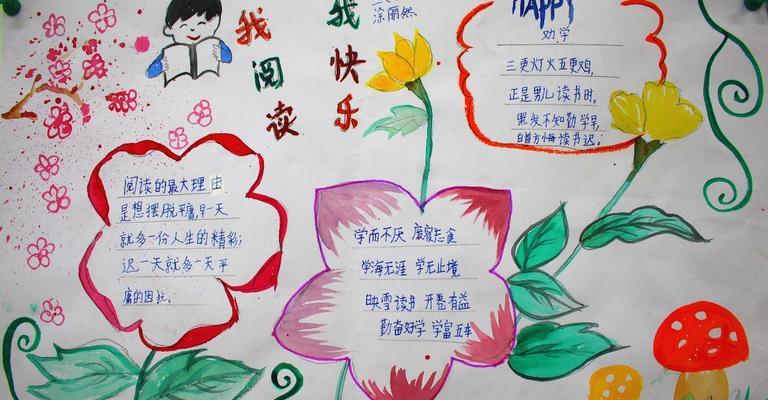 我阅读
我快乐
涂丽然
HAPPY
劝学
三更灯火五更鸡,
正是男儿读书时,
黑发不知勤学早,
白首方悔读书迟。
阅读的最大理由
是想摆脱平庸,早一天
就多一份人生的精彩;
迟一天就多一天平
庸的困扰。
学而不厌 废寝忘食
学海无涯 学无止境
映雪读书 开卷有益
勤奋好学 学富五车